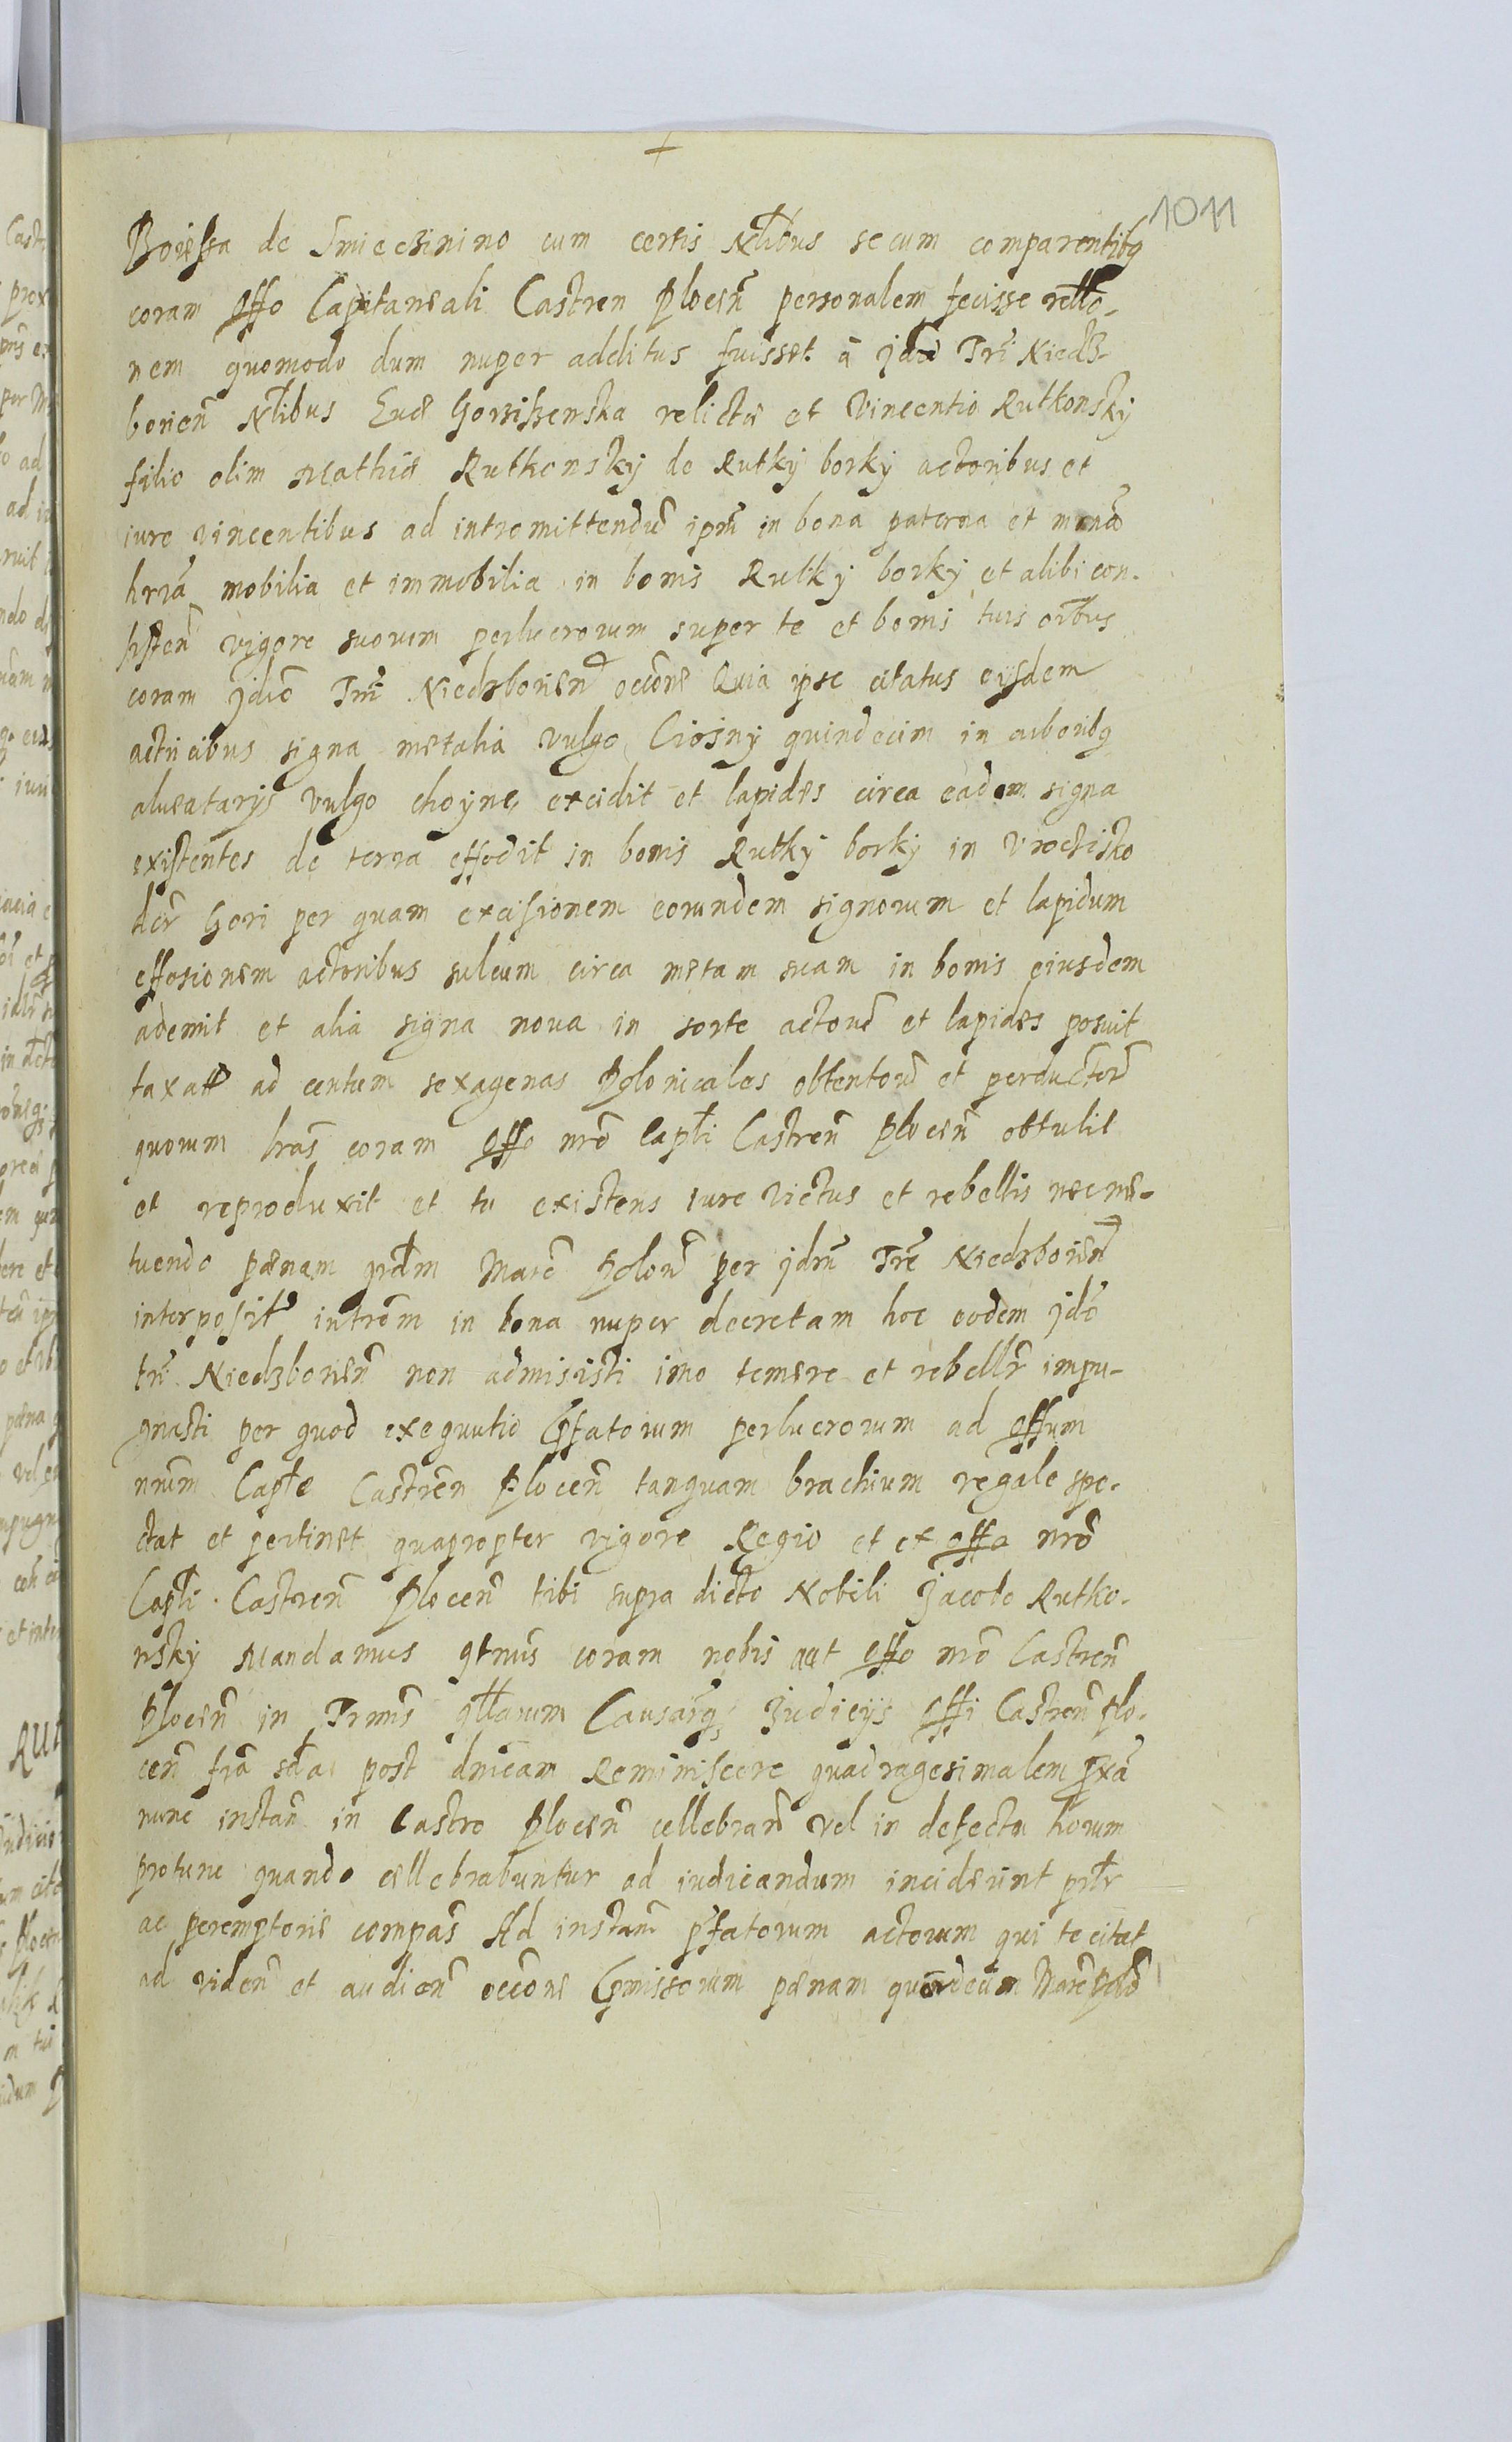 1011
Boiessa de Smiecsinino cum certis Nłibus secum comparentibq
coram Offo Capitaneali Castren Plocen̄ personalem fecisse rełło-
nem quomodo dum nuper additus fuisset à Jdio Trī Niedz-
borien̄ Nłibus Euæ Gorzissenska relictæ et Vincentio Rutkonsky
filio olim Mathiæ Rutkonsky de Rutky borky actoribus et
iure vincentibus ad intromittendū ipm̄ in bona paterna et
hrrā mobilia et immobilia in bonis Rutky borky et alibi con-
sisten̄ vigore suorum perlucrorum super te et bonis tuis oībus
coram Jdio Trī Niedzborien̄ occone Quia ipse citatus eisdem
actricibus signa metalia vulgo Ciosny quindecim in arboribq
alueatarijs vulgo choyne excidit et lapides circa eadem signa
existentes de terra effodit in bonis Rutky borky in Vrocżisko
dcr̄ Gori per quam excisionem eorundem signorum et lapidum
effosionem actoribus sulcum circa metam suam in bonis eiusdem
ademit et alia signa noua in sorte actorū et lapides posuit
taxatt ad centum sexagenas Polonicales obtentorū et perductorū
quorum lrās coram Offo nrō Capłi Castren̄ Plocen̄ obtulit
et reproduxit et tu existens iure victus et rebellis nec me-
tuendo pœnam Marc̄ Polon̄ per Jdm̄ Trē Niedzborien̄
interposit intrōm in bona nuper decretam hoc eodem Jdō
trī Niedzborien̄ non admisisti imo temere et rebellr̄ impu-
gnasti per quod exequutio Pfatorum perlucrorum ad Offum
nrum Capłe Castren̄ Plocen̄ tanquam brachium regale spe-
ctat et pertinet quapropter vigore Regio et ex offo nrō
Capłi Castren̄ Plocen̄ tibi supra dicto Nobili Jacobo Rutko-
nsky Mandamus qtnūs coram nobis aut Offo nrō Castren̄
Plocen̄ in Trmīs qłłarum Causarq Judicijs Offi Castren̄ Plo-
cen̄ frā scda post dnicam Reminiscere quadragesimalem pxā
nunc instan̄ in Castro Plocen̄ cellebran̄ vel in defectu horum
protunc quando cellebrabuntur ad iudicandum inciderint prłr
ac peremptorie compas̄ Ad instan̄ pfatorum actorum qui te citat
ad viden̄ et audien̄ occone Pmissorum pœnam quindecim Marc̄ Polo